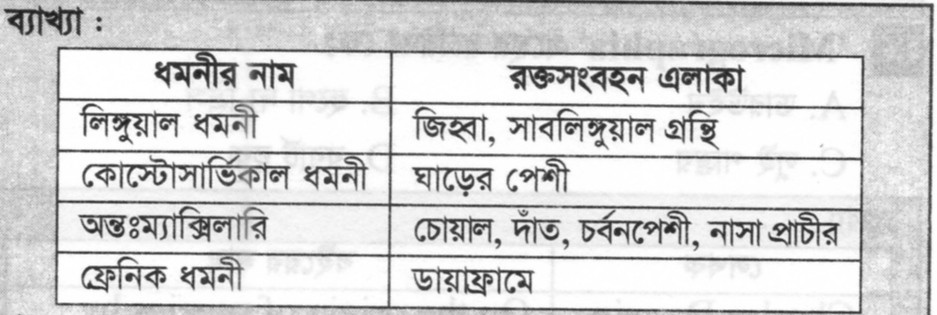 ব্যাখ্যা :
ধমনীর নাম রক্তসংবহন এলাকা
লিঙ্গুয়াল ধমনী জিহ্বা, সাবলিঙ্গুয়াল গ্রন্থি
কোস্টোসার্ভিকাল ধমনী ঘাড়ের পেশী
অন্তঃম্যাক্সিলারি চোয়াল, দাঁত, চর্বনপেশী, নাসা প্রাচীর
ফ্রেনিক ধমনী ডায়াফ্রামে